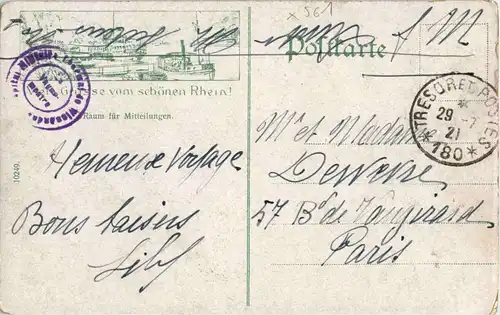 x 561
F M
Postkarte
Grüsse vom schönen Rhein!
Raum für Mitteilungen.
10240.
*TRESOR ET POSTES*
29 -7
21
*180*
Heureux Voyage
Bons baisers
Mr et Madame
57 Bd de Vaugirard
Paris